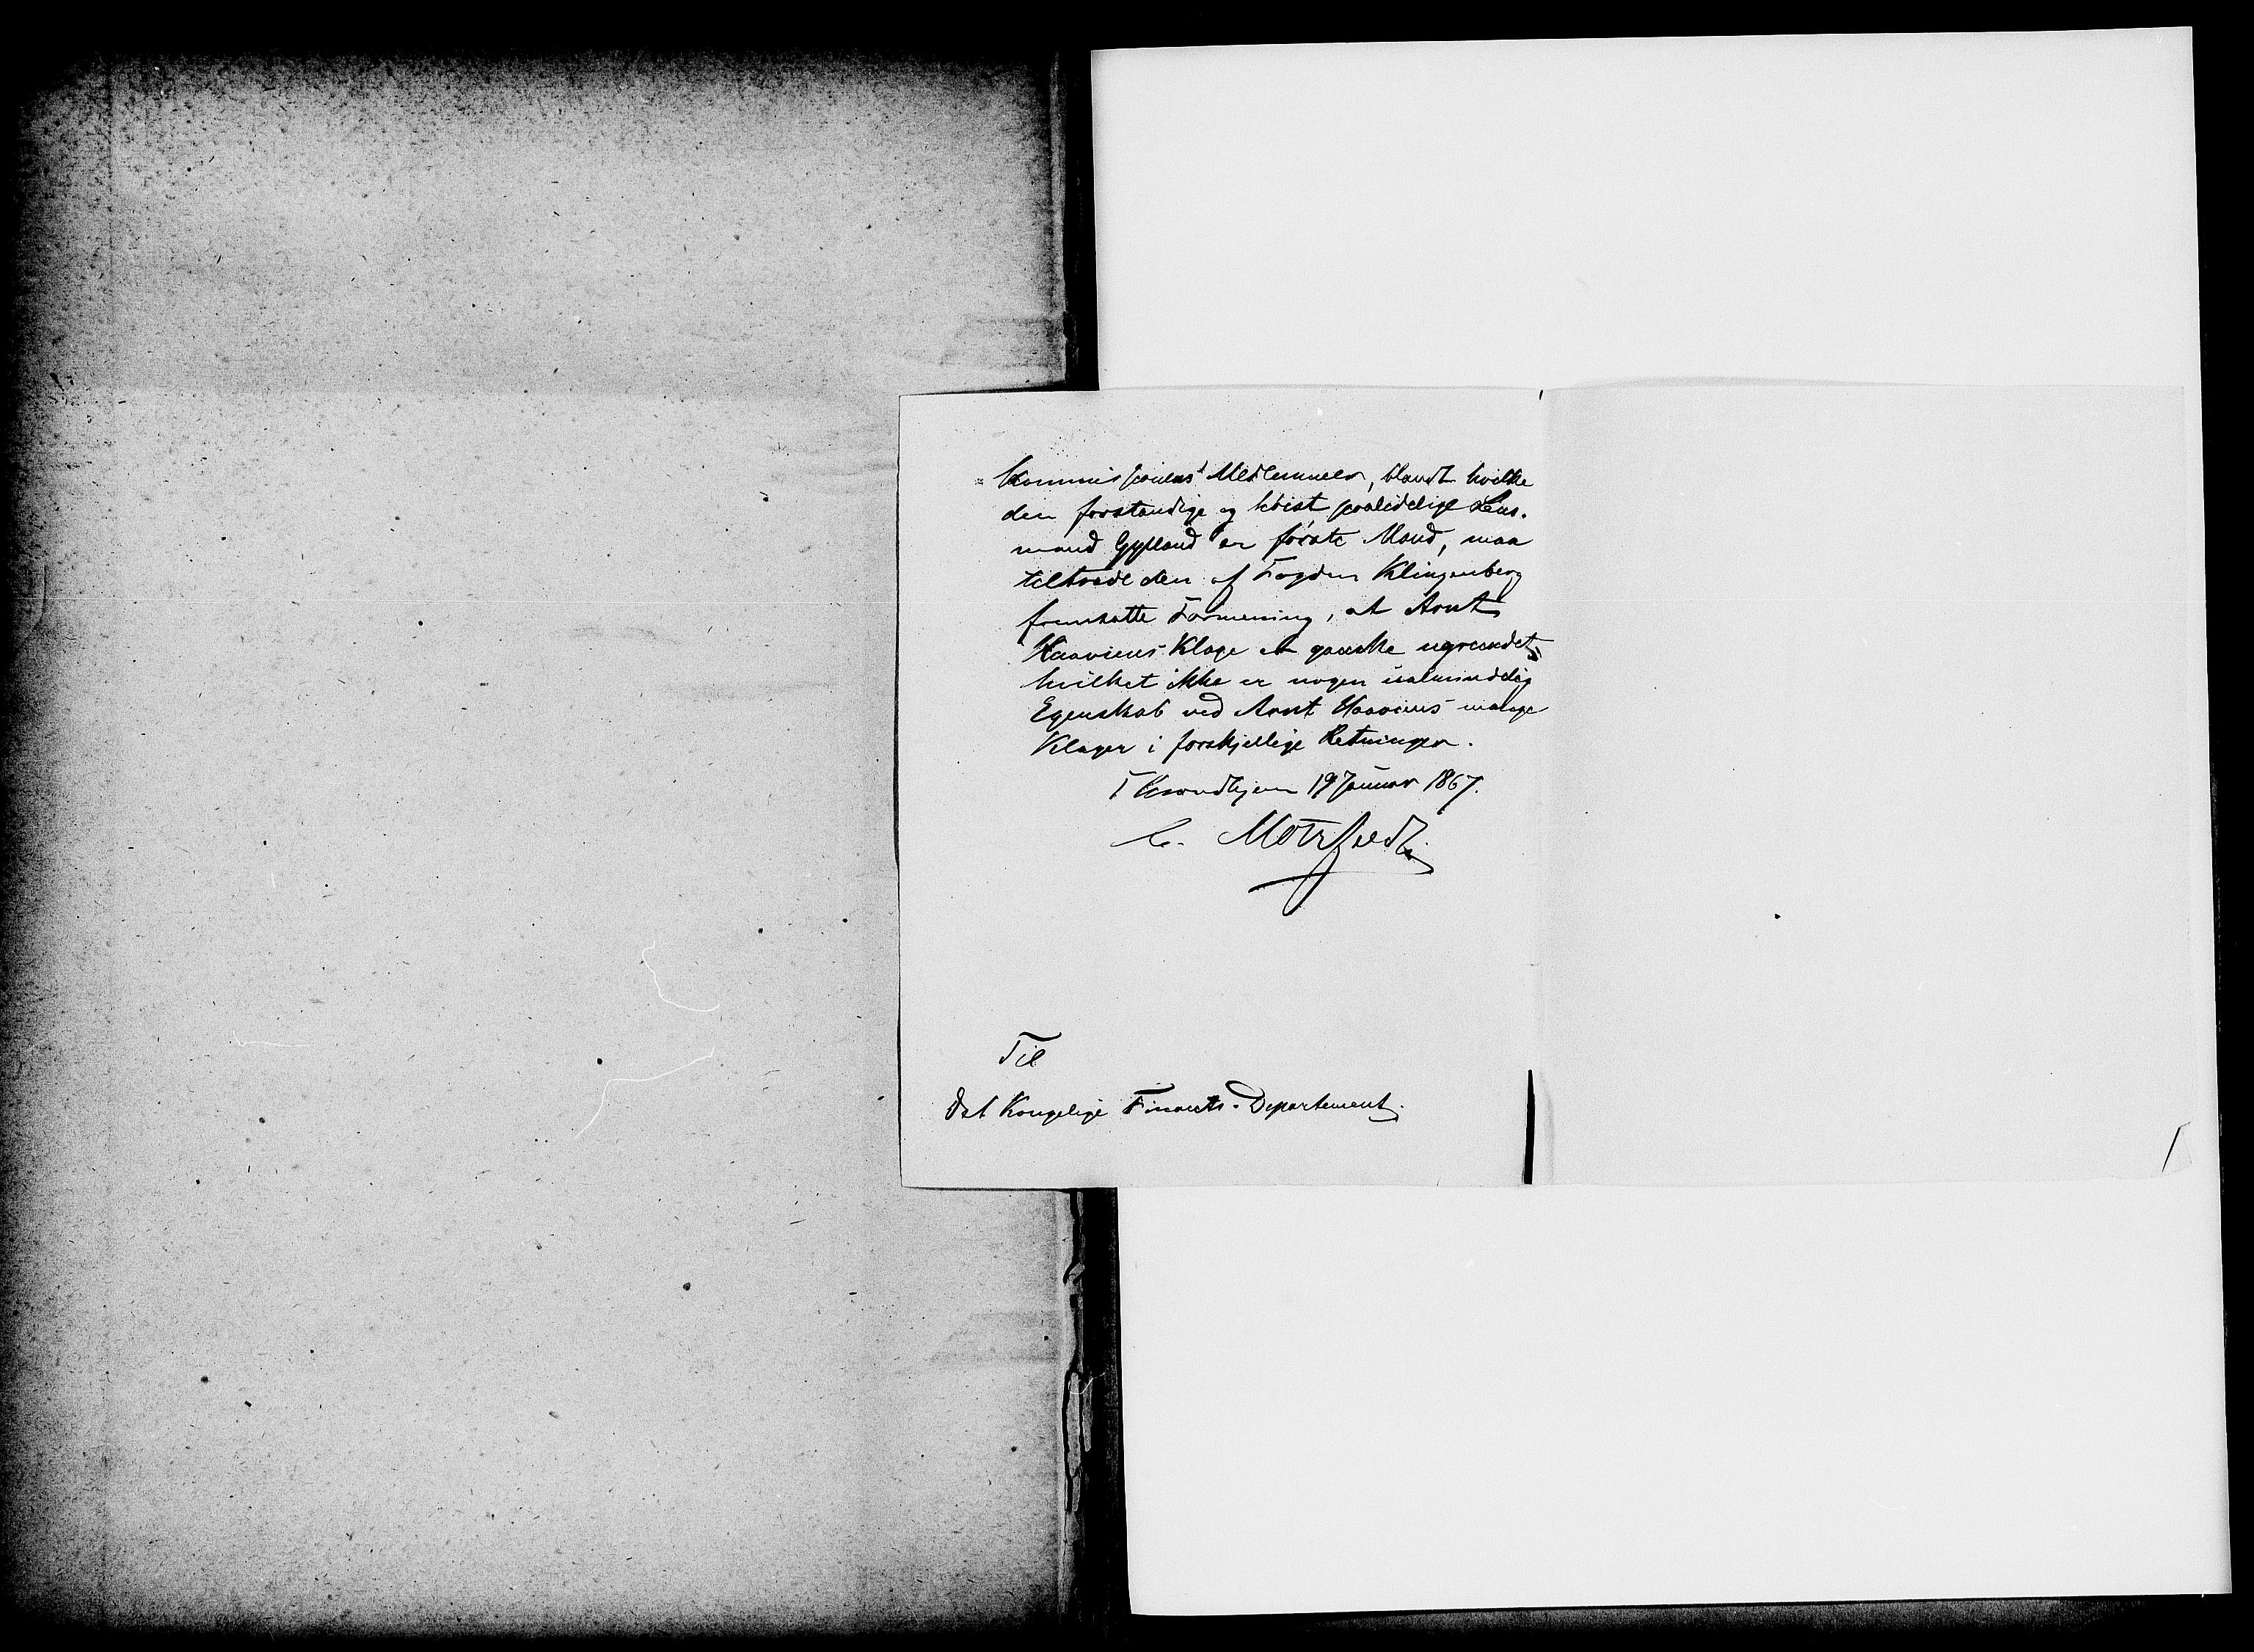 Kommissionens Medlemmer, blandt hvilke
den forstandige og höist paalidelige Lens-
mand Gylland er förste Mand, maa
tiltræde den af Fogden Klingenberg
fremsatte Formening, at Arnt
Haaviens Klage er ganske ugrundet,
hvilket ikke er nogen ualmindelig
Egenskab ved Arnt Haaviens mange
Klager i forskjellige Retninger.
Throndhjem 19 Januar 1867.
C. Motzfeldt
Til
Det Kongelige Finants-Departement.